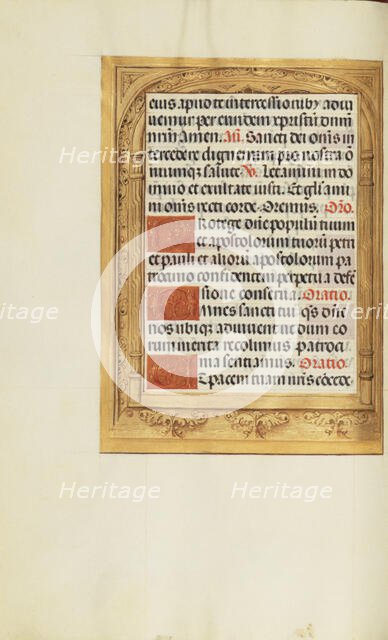 eius apud te intercessionibꝰ adiu
uemur per eundem xpristū dnm
nrm Amen. Añ. Sancti dei om̄s in
tercedere dignemini pro nostra o
mniumqꝫ salute ℣. Letamini in do
mino et exultate iusti. Et gl͞iami
ni om̄s recti corde. Oremus. Oro.
Protege dn̄e populum tuum
et apostolorum tuorū petri
et pauli et aliorū apostolorum pa
trocinio confidentem perpetua defē
sione conserua. Oratio.
Omnes sancti tui q̄s dn̄e
nos ubiqꝫ adiuuent ut dum eo
rum merita recolimus patroci
nia sentiamus. Oratio.
Et pacem tuam n̄ris concede
Heritage Heritage
Heritage Heritage
Heritage Heritage